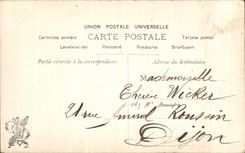 UNION POSTALE UNIVERSELLE
CARTE POSTALE
Cartolina postale Weltpostkarte Tarjeta postal
Levelezö-lap Postcard Postkarte Briefkaart
Partie réservée à la correspondance Adresse du destinataire
Mademoiselle
Wicker
21 rue Amiral Roussin
Dijon